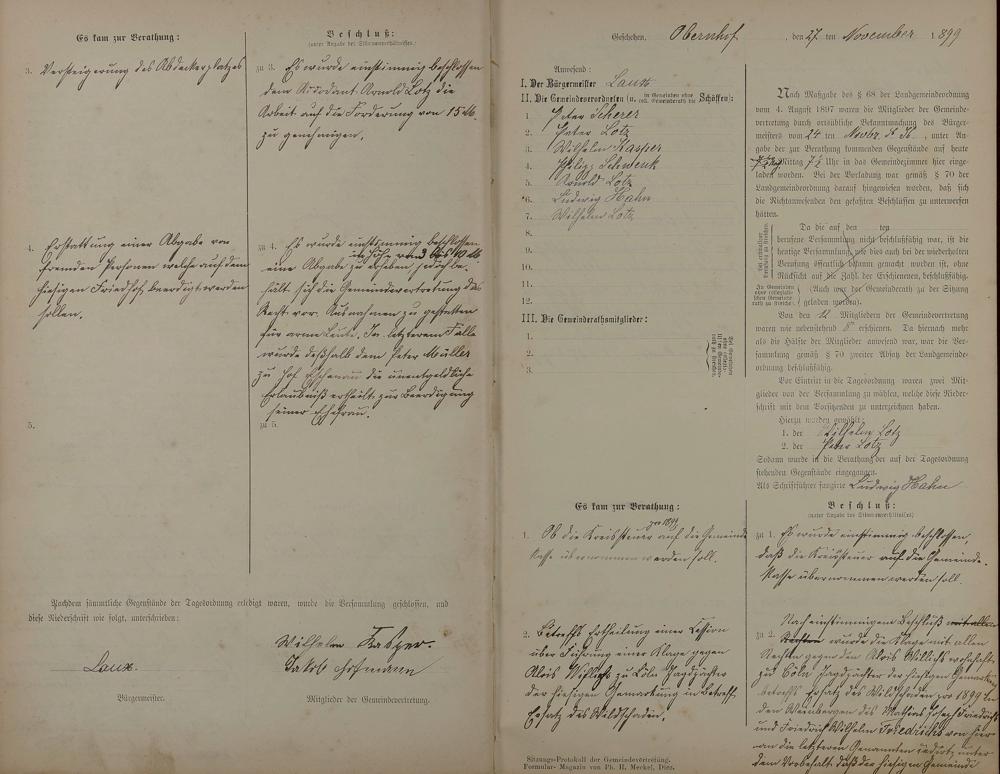 Es kam zur Berathung:
Beschluß:
(unter Angabe des Stimmverhältnisses.)
3. Versteigerung des Abdeckerplatzes
zu 3. Es wurde einstimmig beschlossen
dem Accordant Arnold Lotz die
Arbeit auf die Forderung von 15 M.
zu genehmigen.
4. Erstattung einer Abgabe von
fremden Personen welche auf dem
hiesigen Friedhof beerdigt werden
sollen.
zu 4. Es wurde einstimmig beschlossen
in Höhe von
eine Abgabe zu erheben jedoch be-
hält sich die Gemeindevertretung das
Recht vor. Ausnahmen zu gestatten
für arme Leute. In letzterem Falle
wurde deßhalb dem Peter Müller
zu Hof die unentgeldliche
Erlaubniß ertheilt zur Beerdigung
seiner Ehefrau.
5.
zu 5.
Nachdem sämmtliche Gegenstände der Tagesordnung erledigt waren, wurde die Versammlung geschlossen, und
diese Niederschrift wie folgt, unterschrieben:
Wilhelm Kasper.
Laux.
Jakob Hofmann
Bürgermeister.
Mitglieder der Gemeindevertretung.
Geschehen, Obernhof, den 27 ten November 1899
Anwesend:
I. Der Bürgermeister Laux
II. Die Gemeindeverordneten (u. in Gemeinden ohne coll. Gemeinderath die Schöffen):
1 Peter Scherer
2. Peter Lotz
3. Wilhelm Kasper
4. Philipp Schwenk
5. Arnold Lotz
6. Ludwig Hahn
7. Wilhelm Lotz
8.
9.
10.
11.
12.
III. Die Gemeinderathsmitglieder:
1.
2.
3.
Nach Maßgabe des § 68 der Landgemeindeordnung
vom 4. August 1897 waren die Mitglieder der Gemeinde-
vertretung durch ortsübliche Bekanntmachung des Bürger-
meisters vom 24 ten Novbr. d. Js, unter An-
gabe der zur Berathung kommenden Gegenstände auf heute
Mittag 7½ Uhr in das Gemeindezimmer hier einge-
laden worden. Bei der Vorladung war gemäß § 70 der
Landgemeindeordnung darauf hingewiesen worden, daß sich
die Nichtanwesenden den gefaßten Beschlüssen zu unterwerfen
hätten.
Da die auf den ten
berufene Versammlung nicht beschlußfähig war, ist die
heutige Versammlung, wie dies auch bei der wiederholten
Berufung öffentlich bekannt gemacht worden ist, ohne
Rücksicht auf die Zahl der Erschienenen, beschlußfähig.
(Auch war der Gemeinderath zu der Sitzung
geladen worden).
In Gemeinden
ohne collegiali-
schen Gemeinde-
rath zu streichen.
Von den 12 Mitgliedern der Gemeindevertretung
waren wie nebenstehend 8 erschienen. Da hiernach mehr
als die Hälfte der Mitglieder anwesend war, war die Ver-
sammlung gemäß § 70 zweiter Absatz der Landgemeinde-
ordnung beschlußfähig.
Vor Eintritt in die Tagesordnung waren zwei Mit-
glieder von der Versammlung zu wählen, welche diese Nieder-
schrift mit dem Vorsitzenden zu unterzeichnen haben.
Hierzu wurden gewählt:
1. der Wilhelm Lotz
2. der Peter Lotz
Sodann wurde in die Berathung der auf der Tagesordnung
stehenden Gegenstände eingegangen.
Als Schriftführer fungirte Ludwig Hahn
Es kam zur Berathung:
Beschluß:
(unter Angabe des Stimmverhältnisses)
1. Ob die Kreissteuer pro 1899 auf die Gemeinde
Kasse übernommen werden soll.
zu 1. Es wurde einstimmig beschlossen,
daß die Kreissteuer auf die Gemeinde-
Kasse übernommen werden soll.
2. Betreffs Ertheilung einer Cession
über Führung einer Klage gegen
Alois Willichs zu Cöln Jagdpächter
der hiesigen Gemarkung in Betreff
Ersatz des Wildschaden.
Nach einstimmigem Beschluß mit allen
zu 2. Rechten wurde die Klage mit allen
Rechten gegen den Alois Willichs wohnhaft
zu Cöln Jagdpächter der hiesigen Gemarkung
betreffs Ersatz des Wildschaden pro 1899 in
den Weinbergen des Mathias Joseph Friedrichs
und Friedrich Wilhelm Friedrichs von hier
an die letzteren Genannten cedirt unter
dem Vorbehalt daß die hiesigen Gemeinde
Sitzungs-Protokoll der Gemeindevertretung.
Formular-Magazin von Ph. H. Meckel, Diez.